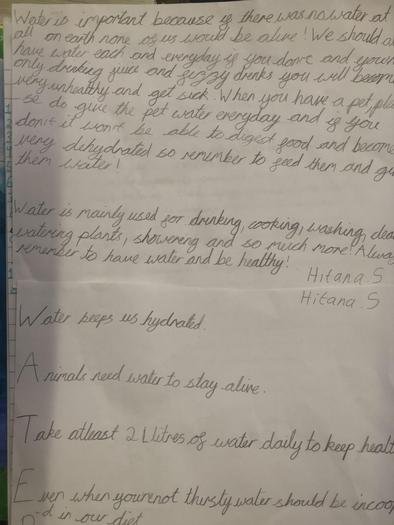 Water is important because if there was no water at
all on earth none of us would be alive! We should a
have water each and everyday if you don't and your
only drinking juice and fizzy drinks you will becom
very unhealthy and get sick. When you have a pet, plea
-se do give the pet water everyday and if you
don't it won't be able to digest food and become
very dehydrated so remember to feed them and gi
them water!
Water is mainly used for drinking, cooking, washing, clea
watering plants, showering and so much more! Alwa
remember to have water and be healthy!
Hitana.S
Hitana.S
Water keeps us hydrated.
Animals need water to stay alive.
Take atleast 2 Llitres of water daily to keep healt
Even when you're not thirsty water should be incoo
-d in our diet